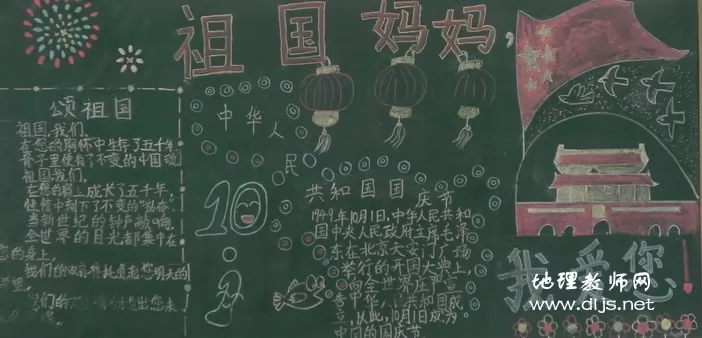 祖国妈妈，
颂祖国
祖国，我们，
在您的胸怀中生存了五千年，
骨子里便有了不变的中国魂
祖国我们，
在您的
上成长了五千年，
当新世纪的钟声敲响，
全世界的目光都集中在
您的身上，
我们的
您明天的
我们的
中华人
民
共和国国
庆节
10
1949年10月1日，中华人民共和
国中央人民政府主席毛泽
东在北京天安门广场
举行的开国大典上，
向全世界庄严宣
告中华人民共和国成
立，从此，10月1日成为
中国的国庆节
我爱您
地理教师网
www.dljs.net